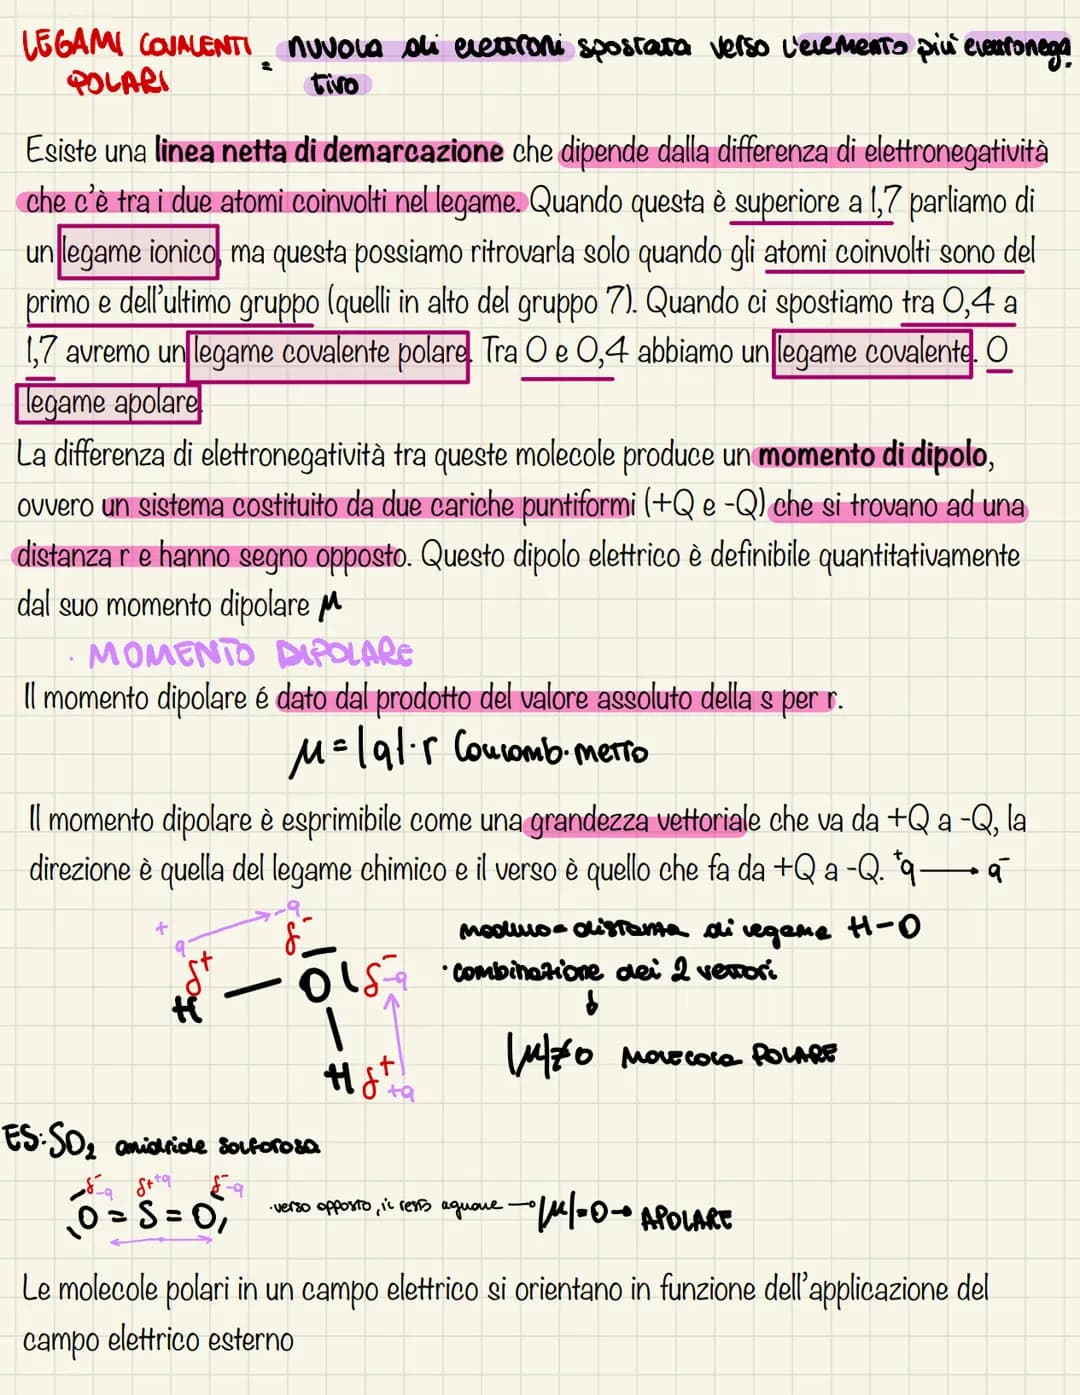 LEGAMI COVALENTI = nuvola di elettroni spostata verso l'elemento più elettronega
POLARI tivo
Esiste una linea netta di demarcazione che dipende dalla differenza di elettronegatività
che c'è tra i due atomi coinvolti nel legame. Quando questa è superiore a 1,7 parliamo di
un legame ionico, ma questa possiamo ritrovarla solo quando gli atomi coinvolti sono del
primo e dell'ultimo gruppo (quelli in alto del gruppo 7). Quando ci spostiamo tra 0,4 a
1,7 avremo un legame covalente polare. Tra 0 e 0,4 abbiamo un legame covalente. 0
legame apolare.
La differenza di elettronegatività tra queste molecole produce un momento di dipolo,
ovvero un sistema costituito da due cariche puntiformi (+Q e -Q) che si trovano ad una
distanza r e hanno segno opposto. Questo dipolo elettrico è definibile quantitativamente
dal suo momento dipolare μ
· MOMENTO DIPOLARE
Il momento dipolare é dato dal prodotto del valore assoluto della s per r.
μ=|q|·r Coulomb·metro
Il momento dipolare è esprimibile come una grandezza vettoriale che va da +Q a -Q, la
direzione è quella del legame chimico e il verso è quello che fa da +Q a -Q. +q → q-
+q → -q
δ+ δ-
modulo = distanza di legame H-O
H — O| δ- -q
· combinazione dei 2 vettori
↓
|μ|≠0 molecola POLARE
H δ+ +q
ES: SO2 anidride solforosa
δ- -q δ+ +q δ- -q
O = S = O
· verso opposto, il resto uguale → |μ|=0 → APOLARE
Le molecole polari in un campo elettrico si orientano in funzione dell'applicazione del
campo elettrico esterno